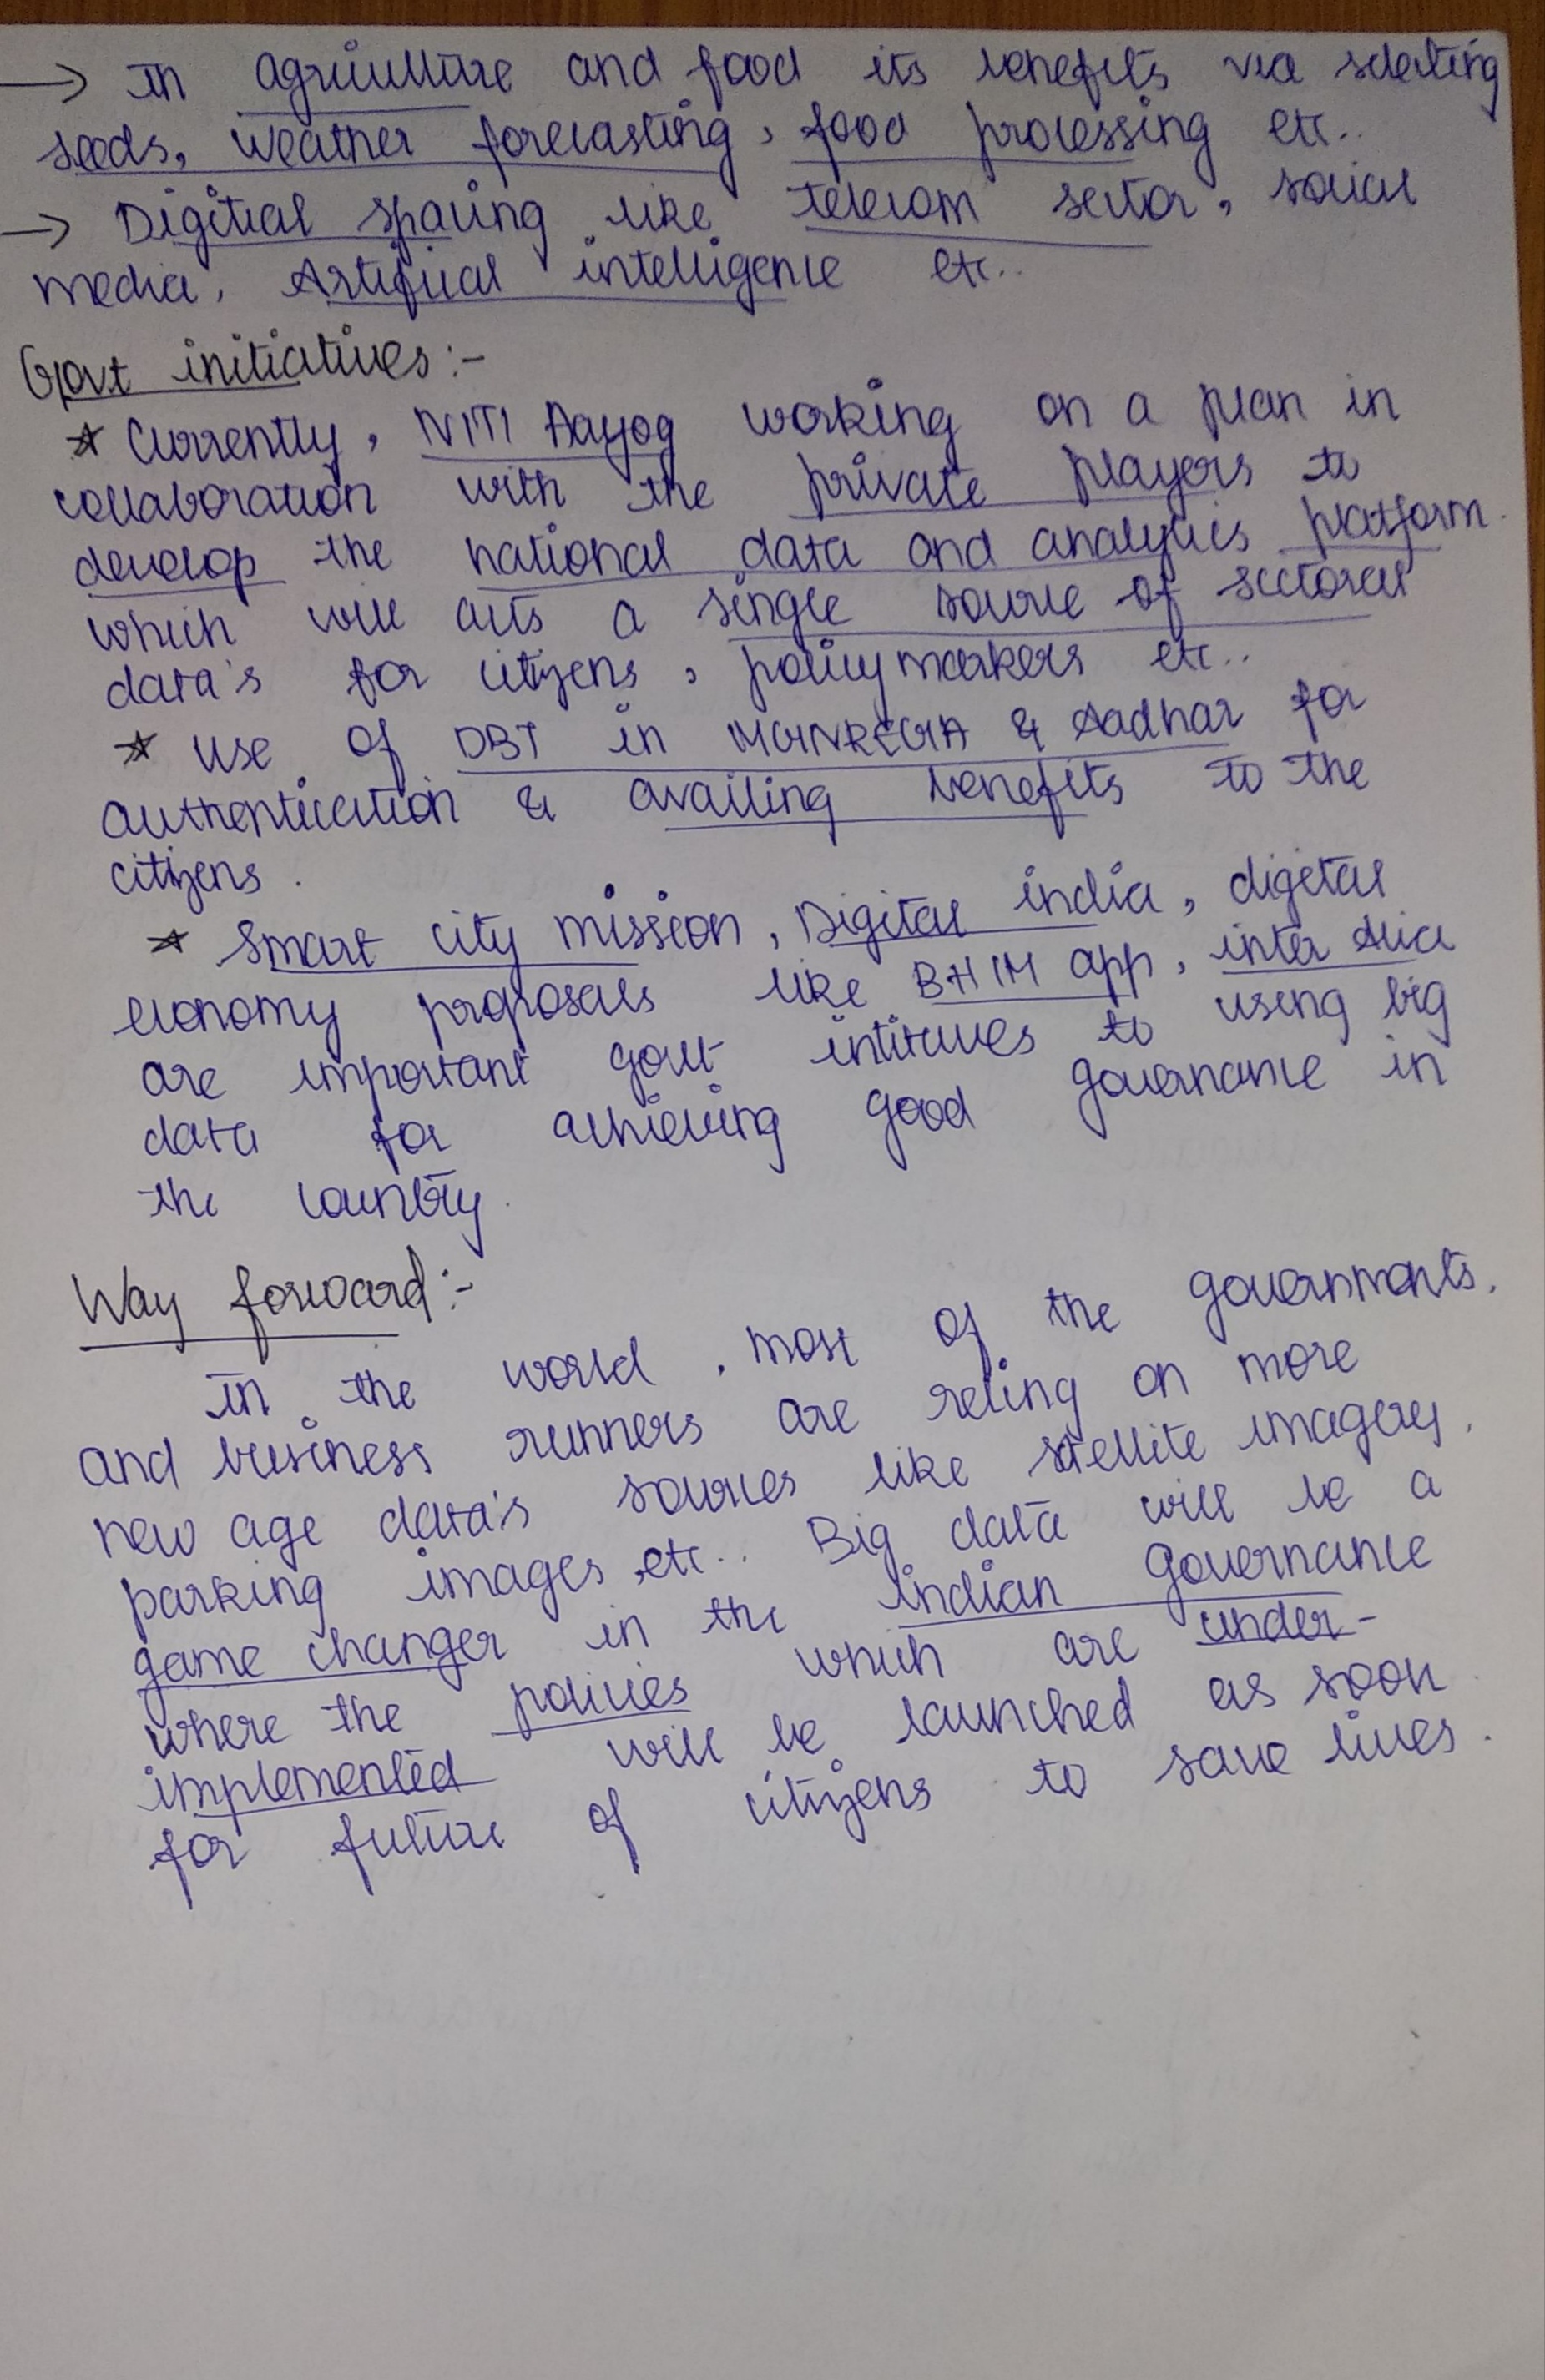 → In agriculture and food its benefits via selecting
seeds, weather forecasting, food processing etc..
→ Digitial spacing like telecom sector, social
media, Artificial intelligence etc..
Govt initiatives:-
☆ Currently, NITI Aayog working on a plan in
collaboration with the private players to
develop the national data and analytics platform
which will acts a single source of sectoral
data's for citizens, policymarkers etc..
☆ use of DBT in MGNREGA & Aadhar for
authentication & availing benefits to the
citizens.
☆ Smart city mission, Digital india, digital
economy proposals like BHIM app, inter Alia
are important govt intitaves to using big
data for achieving good governance in
the country.
Way forward:-
In the world, most of the governments,
and business runners are reling on more
new age data's sources like stellite imagery,
parking images, etc.. Big data will be a
game changer in the indian governance
where the policies which are under-
implemented will be launched as soon
for future of citizens to save lives.